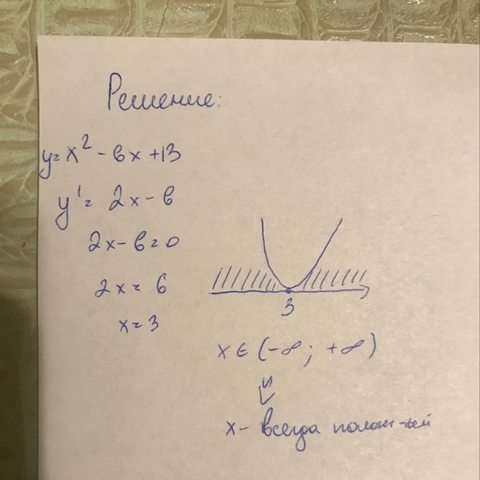 Решение:
y = x² - 6x + 13
y' = 2x - 6
2x - 6 = 0
2x = 6
x = 3
3
x ∈ (-∞; +∞)
⇓
x - всегда полож-ый